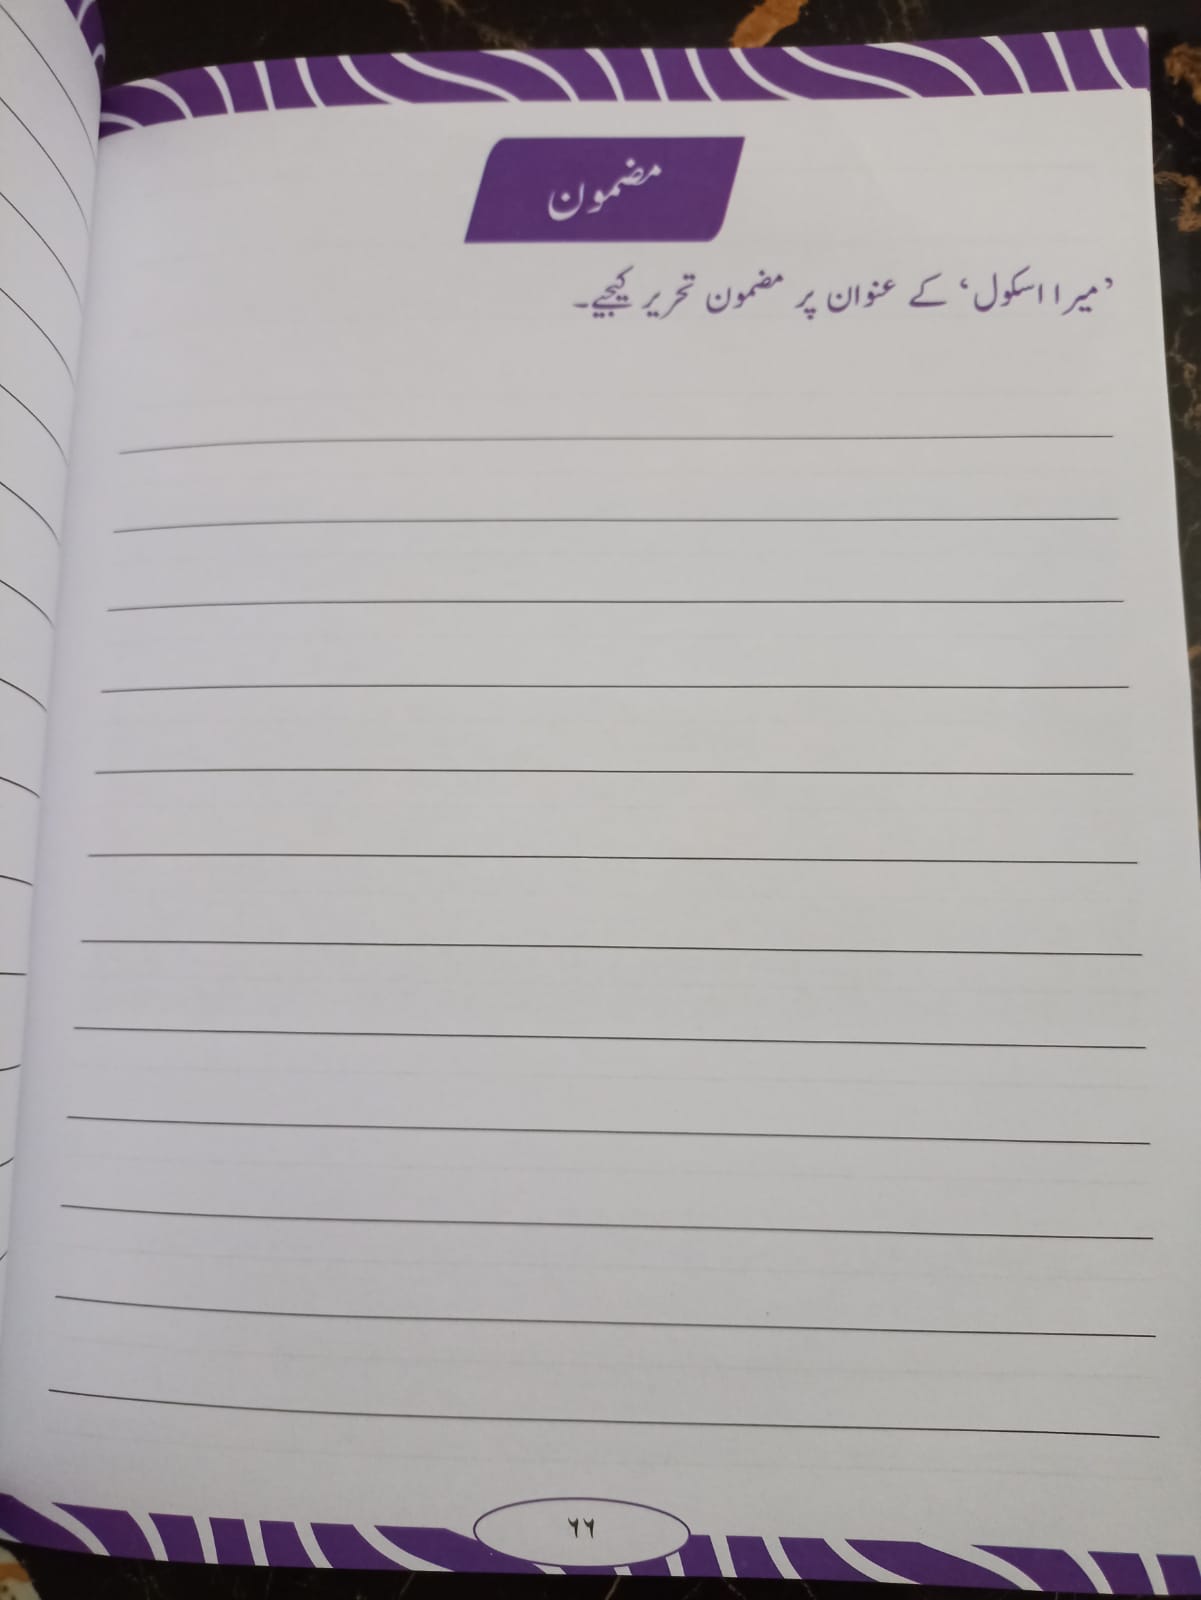 مضمون
’میرا اسکول‘ کے عنوان پر مضمون تحریر کیجیے۔
۶۶